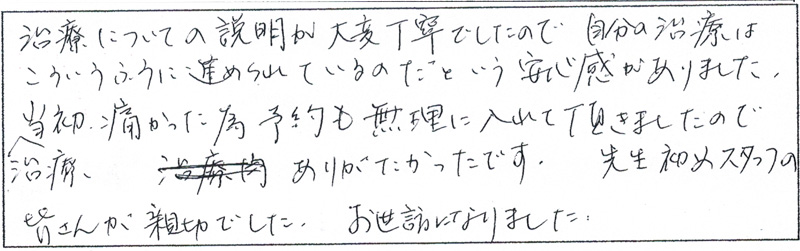 治療についての説明が大変丁寧でしたので 自分の治療は
こういうふうに進められているのだという安心感がありました。
当初、痛かった為 予約も無理に入れて頂きましたので
治療、 治療内 ありがたかったです。 先生初めスタッフの
皆さんが親切でした。 お世話になりました。